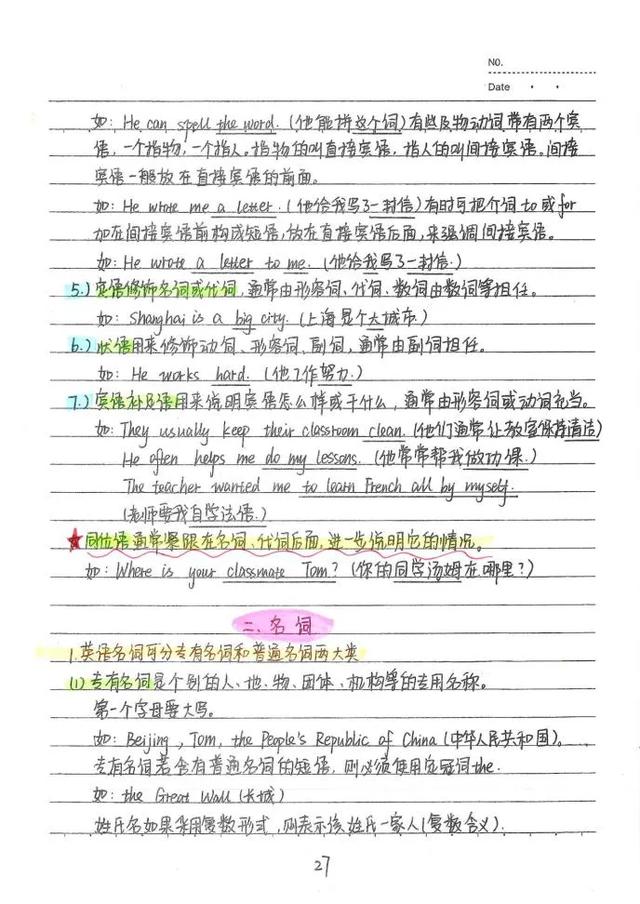 NO.
Date · ·
如: He can spell the word. (他能拼这个词) 有些及物动词带有两个宾
语, 一个指物, 一个指人。指物的叫直接宾语, 指人的叫间接宾语。间接
宾语一般放在直接宾语的前面。
如: He wrote me a letter. (他给我写了一封信) 有时可把个词to或for
加在间接宾语前构成短语, 放在直接宾语后面, 来强调间接宾语。
如: He wrote a letter to me. (他给我写了一封信.)
5.) 定语修饰名词或代词, 通常由形容词、代词、数词由数词等担任。
如: Shanghai is a big city. (上海是个大城市)
6.) 状语用来修饰动词、形容词、副词, 通常由副词担任。
如: He works hard. (他工作努力.)
7.) 宾语补足语用来说明宾语怎么样或干什么, 通常由形容词或动词充当。
如: They usually keep their classroom clean. (他们通常让教室保持清洁)
He often helps me do my lessons. (他常常帮我做功课.)
The teacher wanted me to learn French all by myself.
(老师要我自学法语.)
★同位语通常紧跟在名词、代词后面, 进一步说明它的情况。
如: Where is your classmate Tom? (你的同学汤姆在哪里?)
二、名词
1.英语名词可分专有名词和普通名词两大类
(1) 专有名词是个别的人、地、物、团体、机构等的专用名称。
第一个字母要大写。
如: Beijing, Tom, the People's Republic of China (中华人民共和国)。
专有名词若含有普通名词的短语, 则必须使用定冠词the.
如: the Great Wall (长城)
姓氏名如果采用复数形式, 则表示该姓氏一家人(复数含义).
27